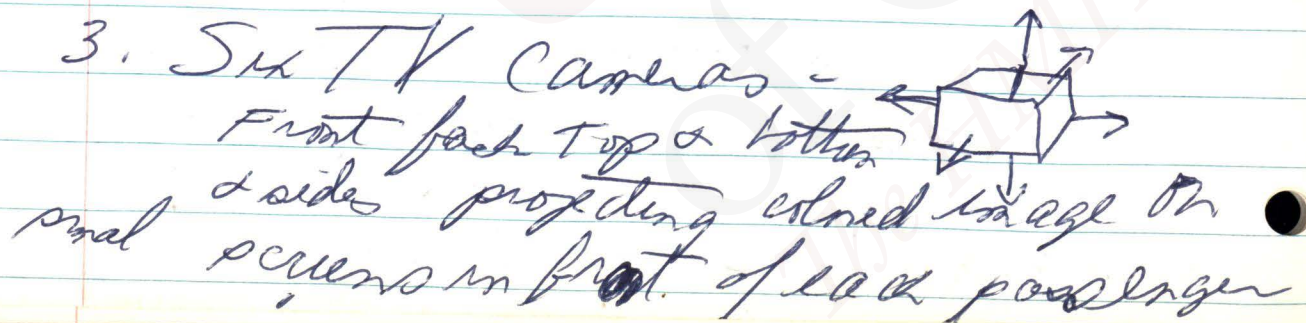 3. Six TV Cameras -
Front back Top & bottom
& sides projecting colored image on
smal screens in front of each passenger